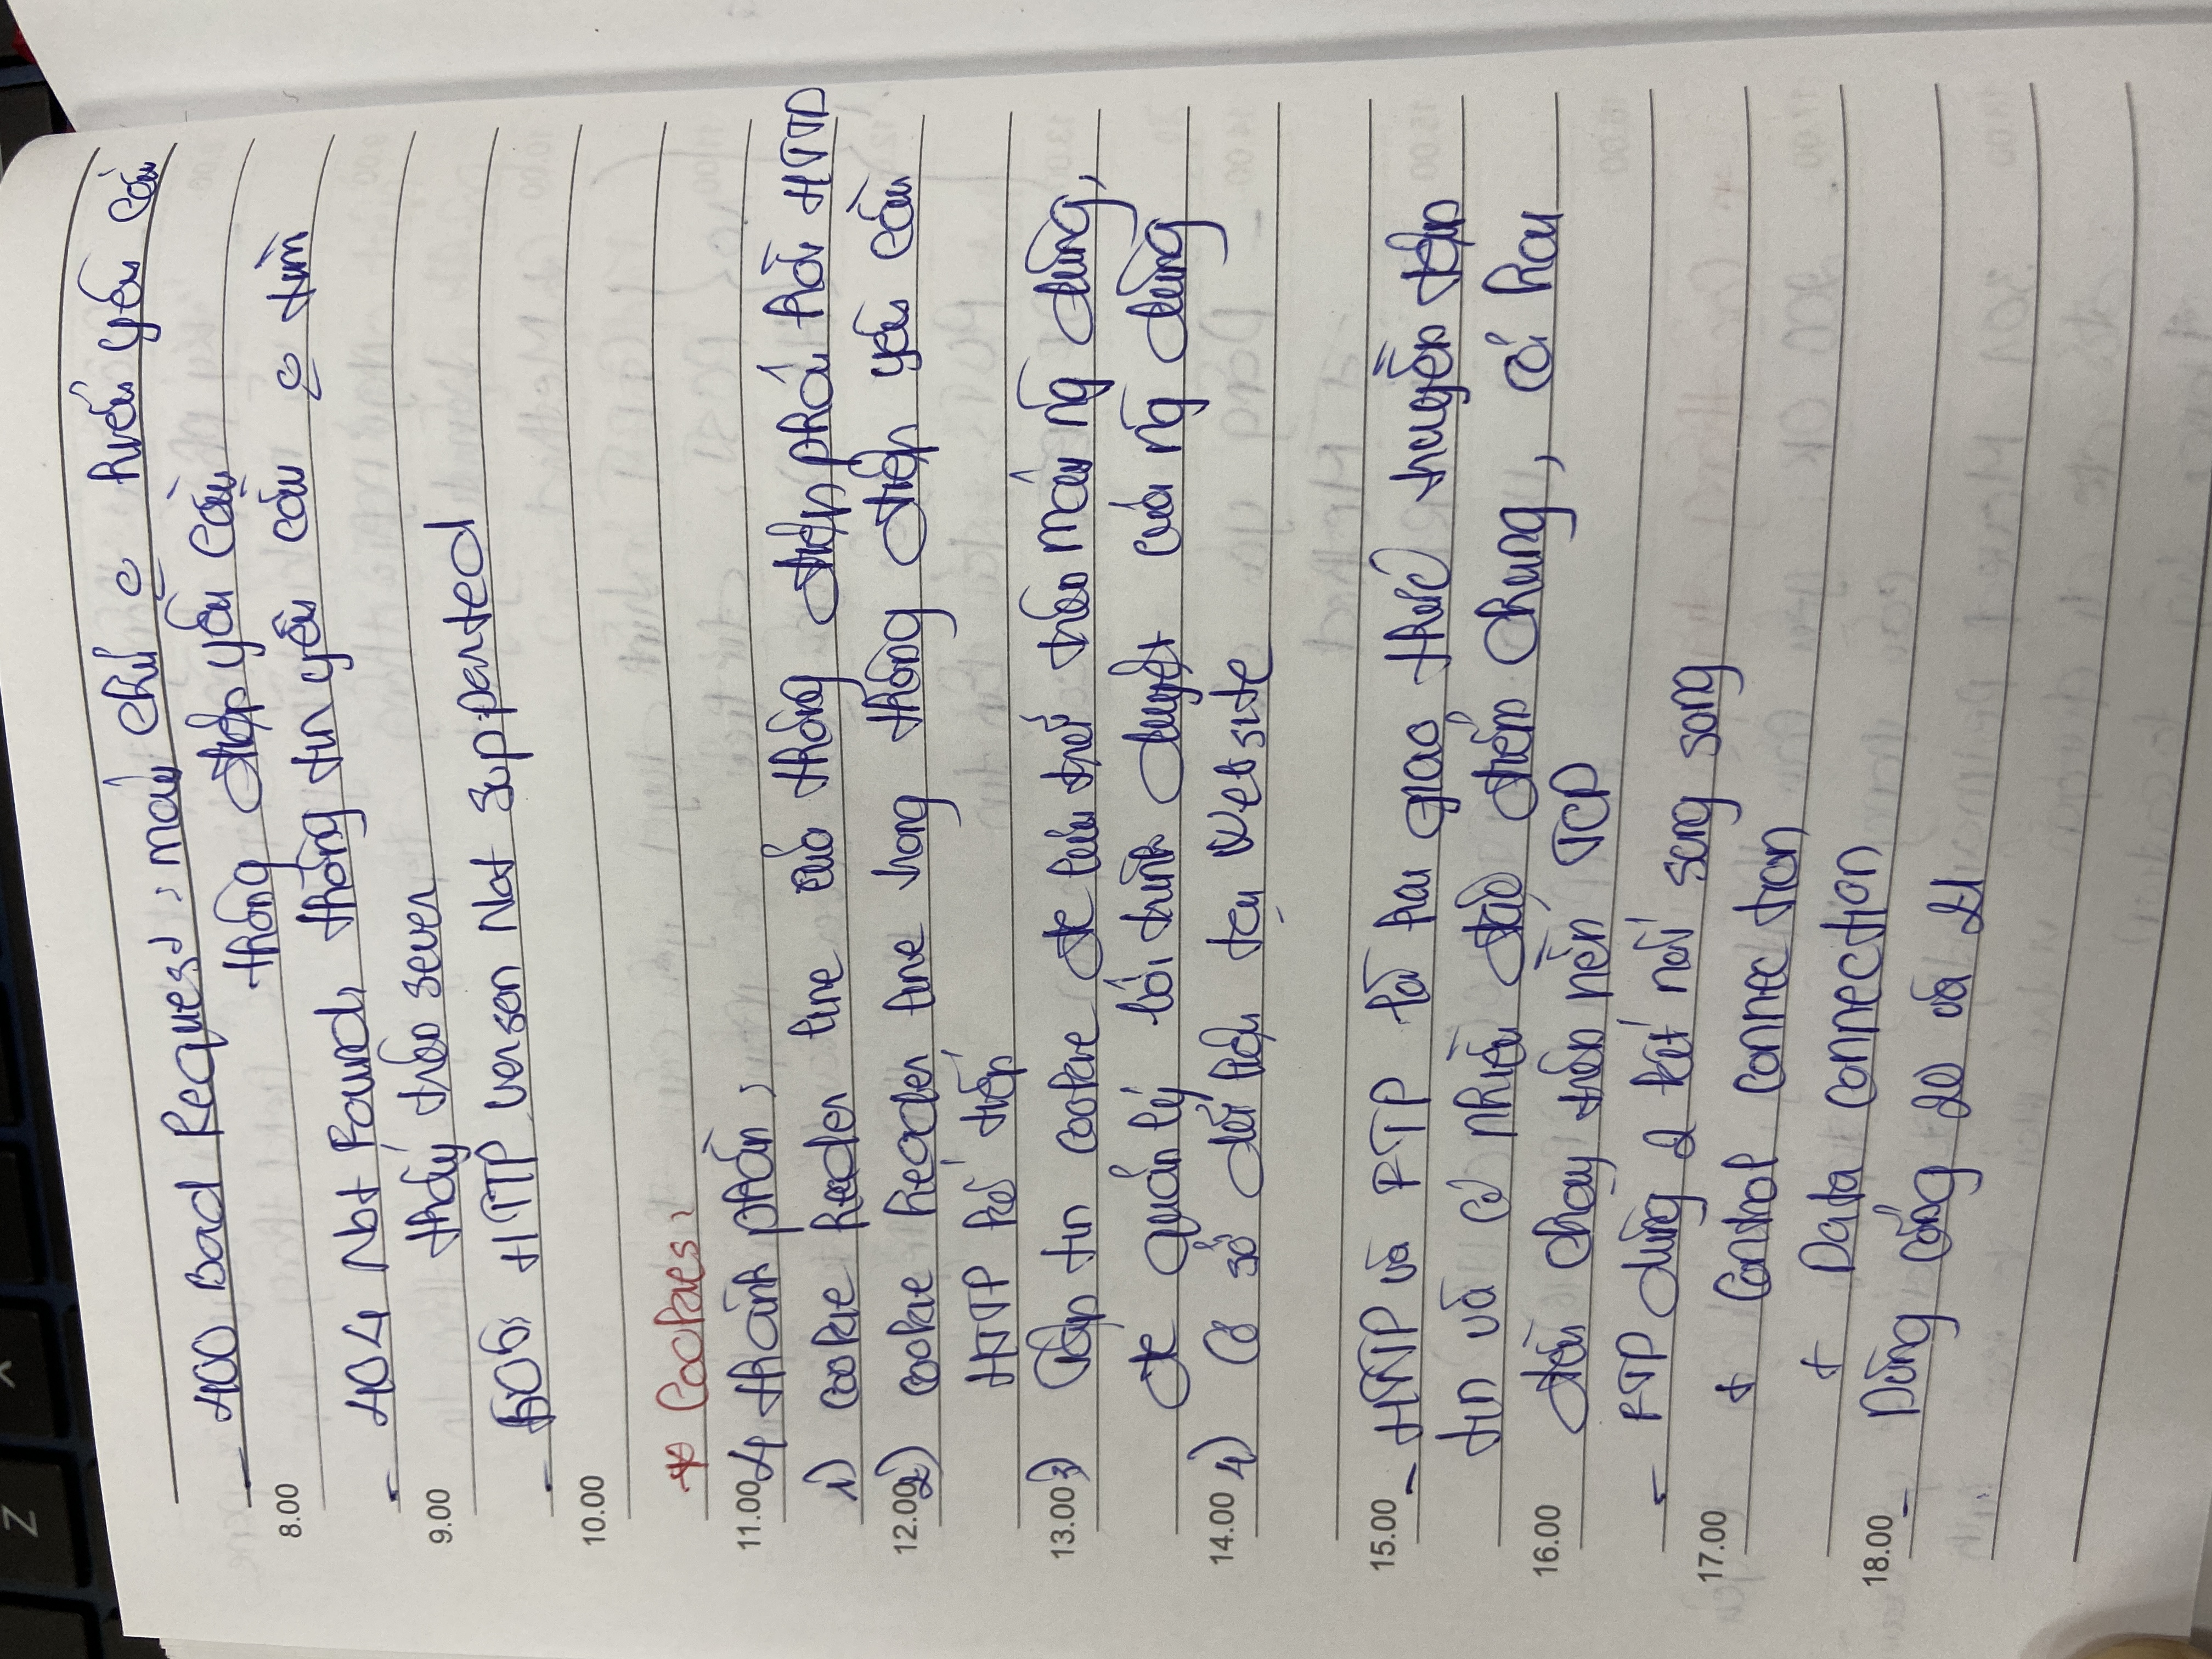 Z
- 400 Bad Request: máy chủ o hiểu yêu cầu
thông điệp yêu cầu
8.00
- 404 Not Found, thông tin yêu cầu o tìm
thấy trên sever
9.00
- 505: HTTP verson Not Supported
10.00
* Cookies:
11.00 4 thành phần:
1) cookie header line của thông điệp phản hồi HTTP
12.00 2) cookie header line trong thông điệp yêu cầu
HTTP kế tiếp
13.00 3) Tập tin cookie đc lưu trữ trên máy ng dùng,
đc quản lý bởi trình duyệt của ng dùng
14.00 4) Cơ sở dữ liệu tại Website
15.00 - HTTP và FTP là hai giao thức truyền tập
tin và có nhiều đặc điểm chung, cả hai
16.00 đều chạy trên nền TCP
- FTP dùng 2 kết nối song song
17.00 + Control connection
+ Data connection
18.00 - Dùng cổng 20 và 21